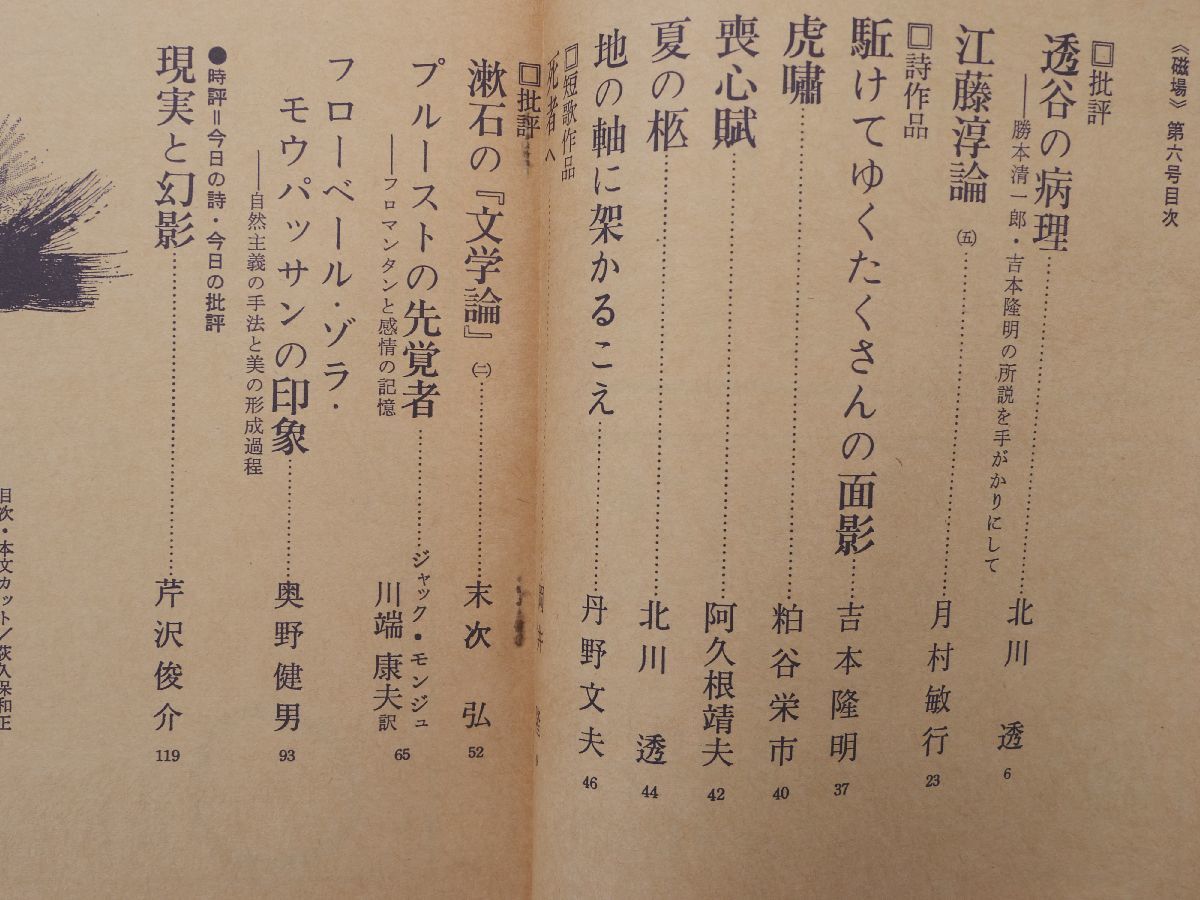 《磁場》第六号目次
□批評
透谷の病理……北川 透 6
――勝本清一郎・吉本隆明の所説を手がかりにして
江藤淳論 ㈤……月村敏行 23
□詩作品
駈けてゆくたくさんの面影……吉本隆明 37
虎嘯……粕谷栄市 40
喪心賦……阿久根靖夫 42
夏の柩……北川 透 44
地の軸に架かるこえ……丹野文夫 46
□短歌作品
死者へ
□批評
漱石の『文学論』 ㈡……末次 弘 52
プルーストの先覚者……ジャック・モンジュ
――フロマンタンと感情の記憶
川端康夫訳 65
フローベール・ゾラ・
モウパッサンの印象……奥野健男 93
――自然主義の手法と美の形成過程
●時評=今日の詩・今日の批評
現実と幻影……芹沢俊介 119
目次・本文カット/荻久保和正